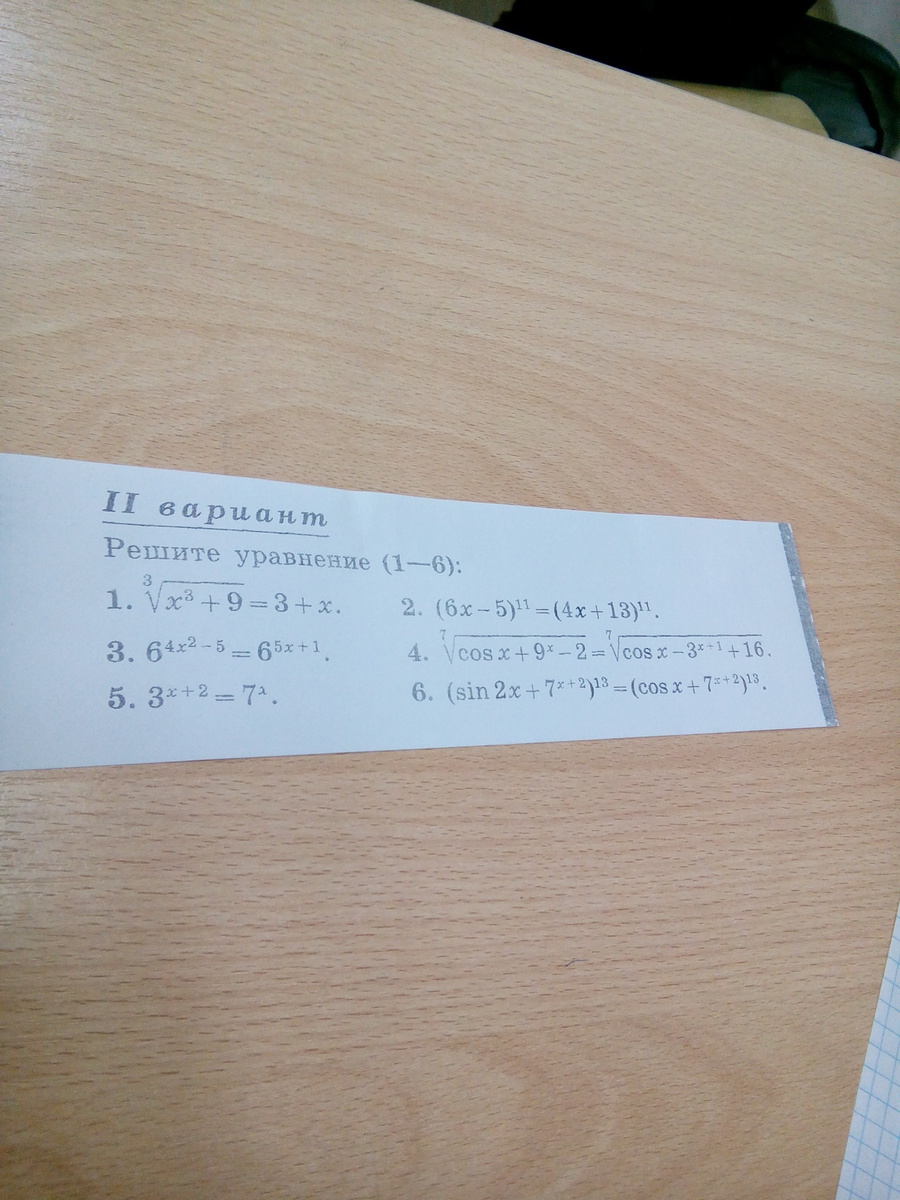 II вариант
Решите уравнение (1—6):
1. ∛(x³ + 9) = 3 + x. 2. (6x − 5)¹¹ = (4x + 13)¹¹.
3. 6^(4x² − 5) = 6^(5x + 1). 4. ⁷√(cos x + 9^x − 2) = ⁷√(cos x − 3^(x + 1) + 16).
5. 3^(x + 2) = 7^x. 6. (sin 2x + 7^(x + 2))¹³ = (cos x + 7^(x + 2))¹³.